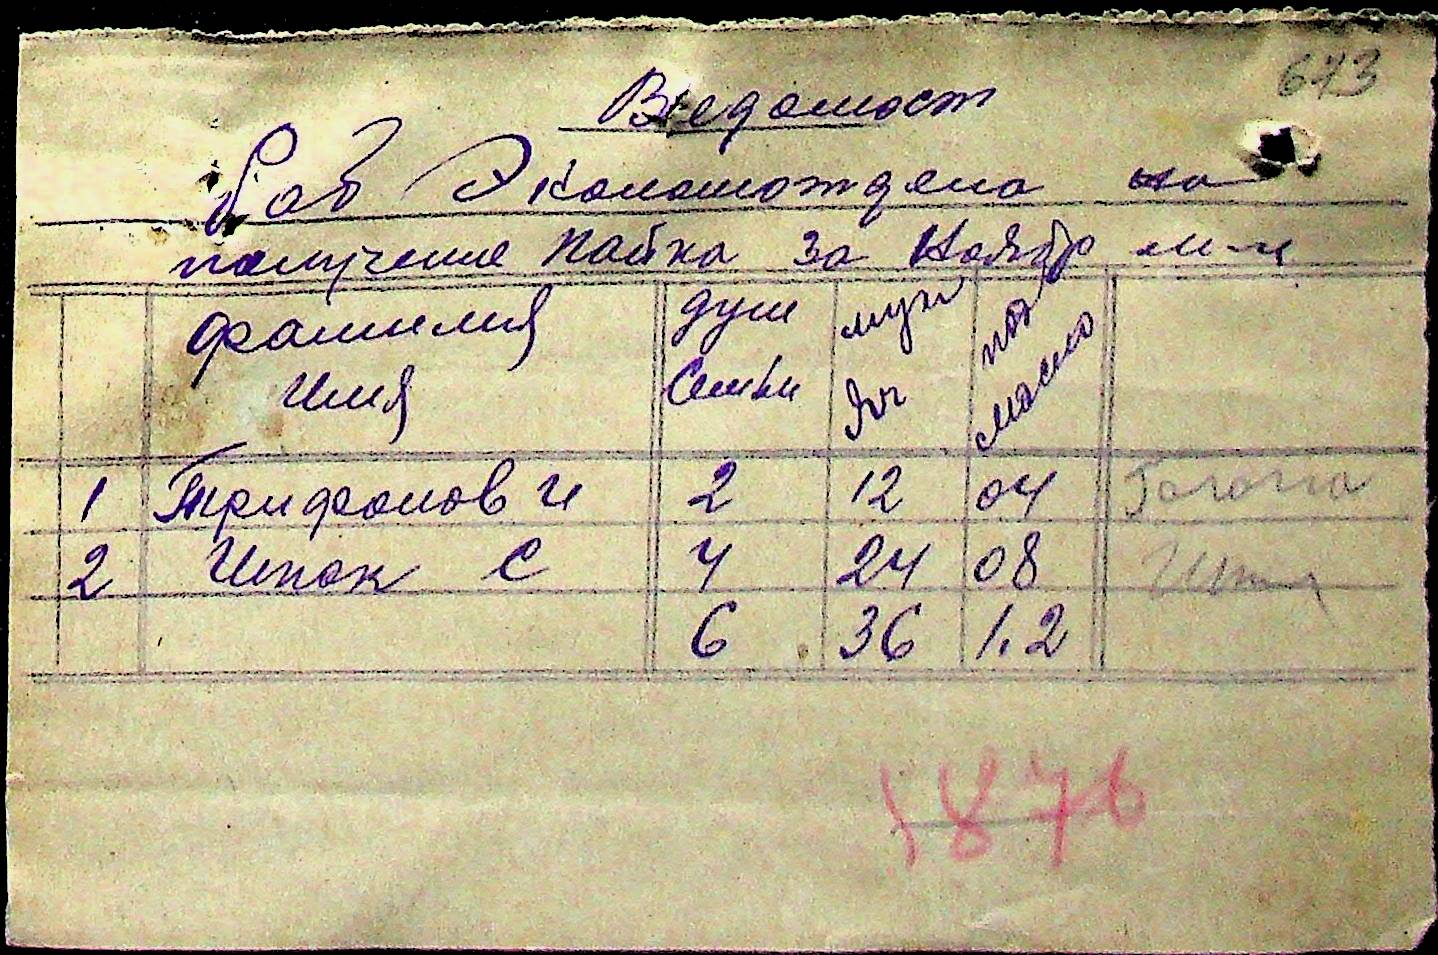 673
Ведомост
Раб Экономотдела на
получение пайка за Ноябр м-ц
фамилия Имя душ Семьи муки яч под масло
1 Трифонов И 2 12 04
2 Шпак С 4 24 08
6 36 1.2
1876